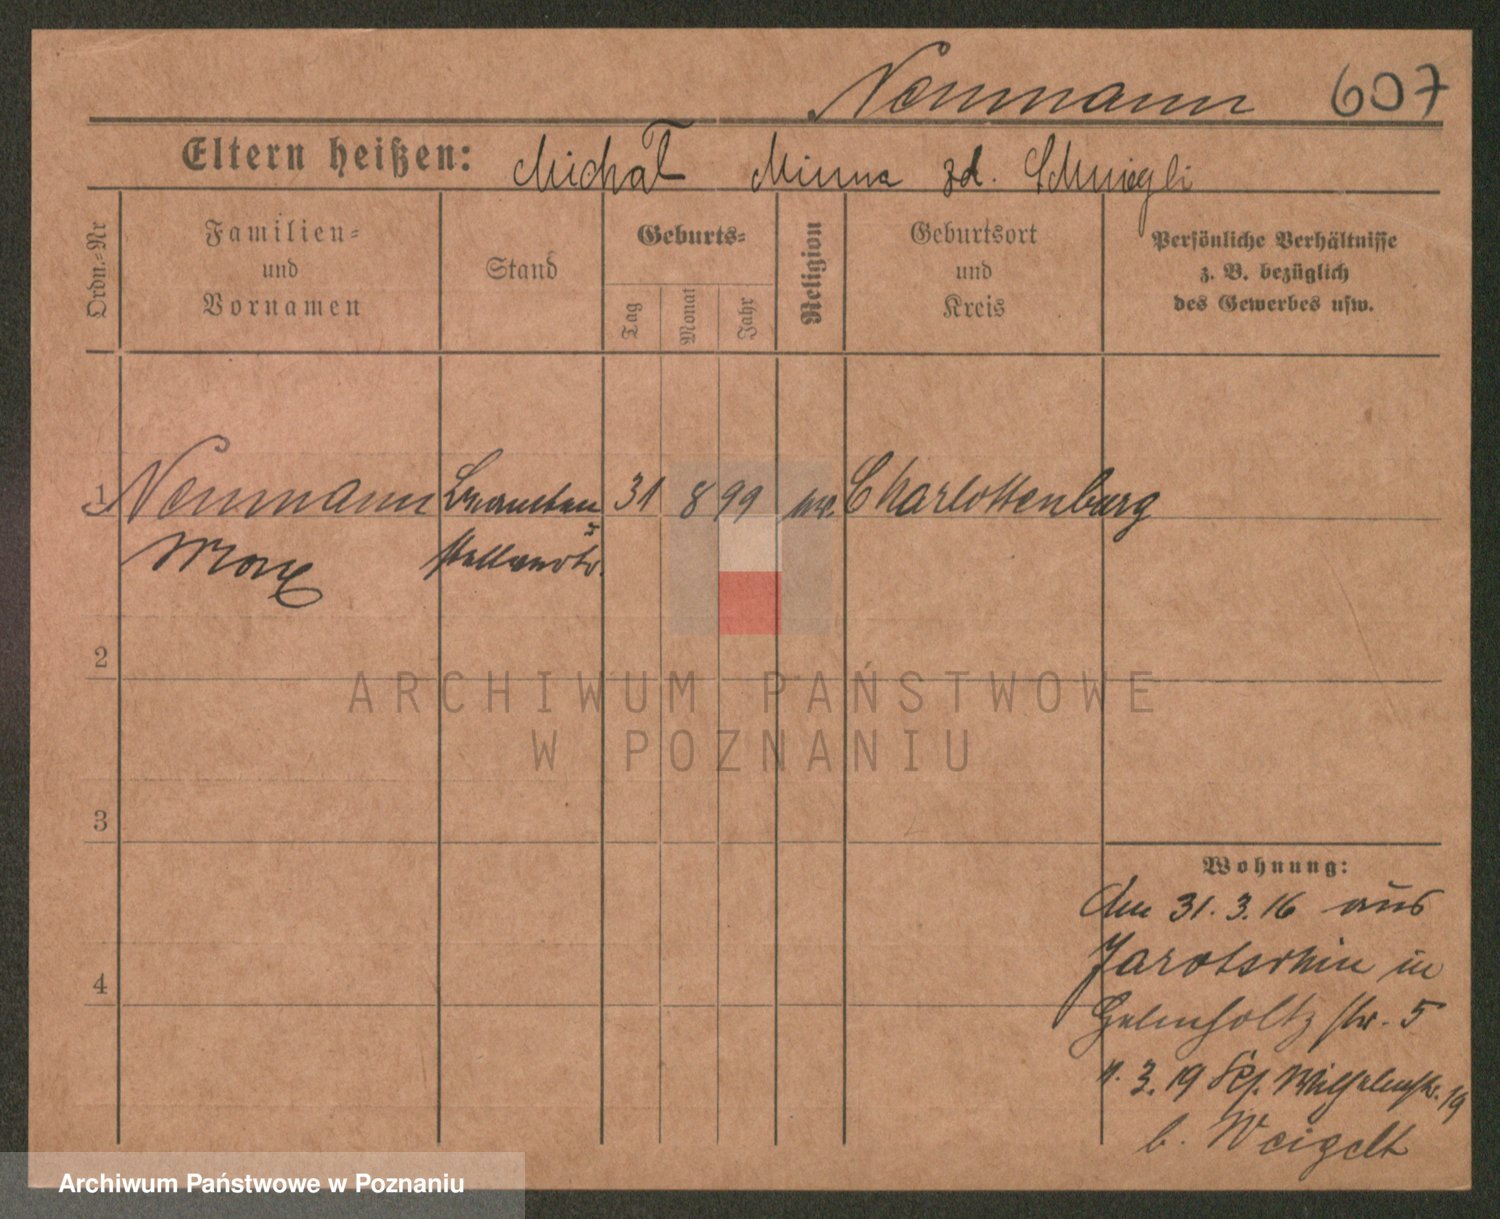 Neumann 607
Eltern heißen: Michał Minna zd. Schmiegli
Ordn.=Nr
Familien=
und
Vornamen
Stand
Geburts=
Tag
Monat
Jahr
Religion
Geburtsort
und
Kreis
Persönliche Verhältnisse
z. B. bezüglich
des Gewerbes usw.
1 Neumann Beamten 31 8 99 Charlottenburg
Max stellvertr.
2
ARCHIWUM PAŃSTWOWE
W POZNANIU
3
Wohnung:
Am 31.3.16 aus
Jarotschin in
4
Helmholtz str. 5
3.19 Wilhelmstr. 19
b. Weigelt
Archiwum Państwowe w Poznaniu